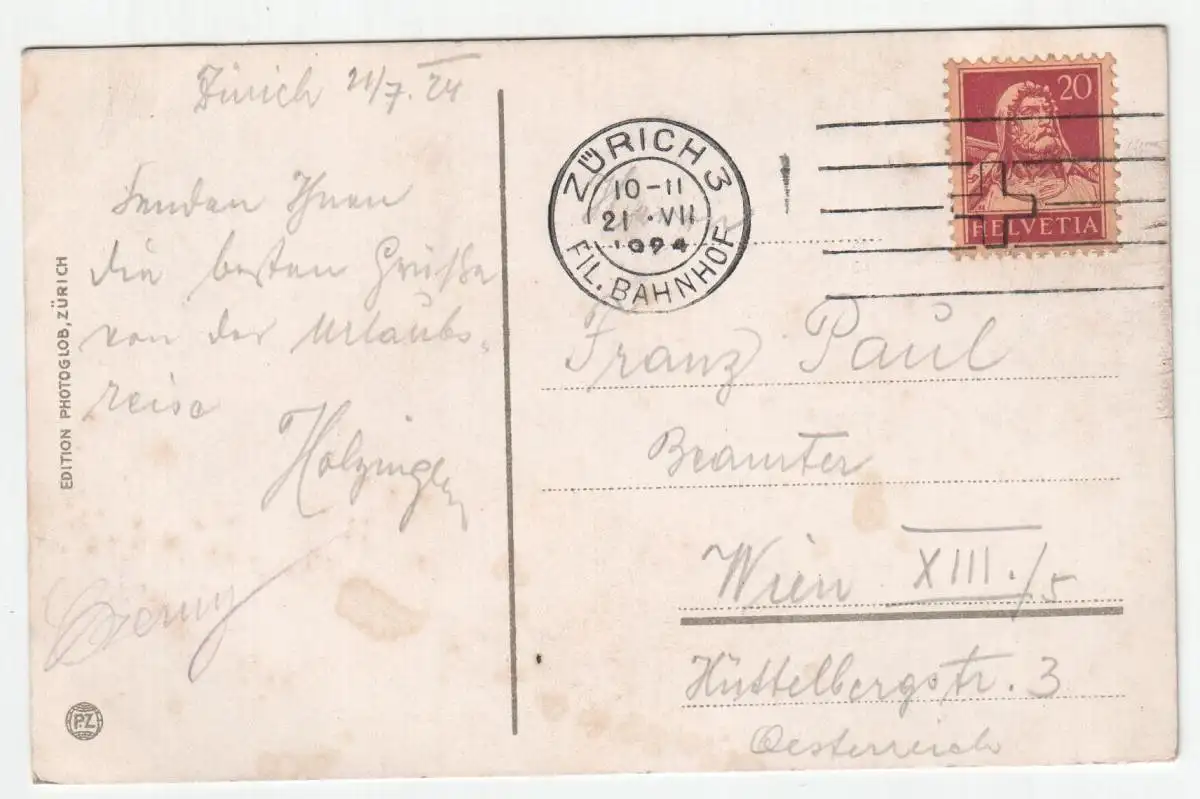 Zürich 21/7. 24
Senden Ihnen
die besten Grüße
von der Urlaubs-
reise
Holzinger
EDITION PHOTOGLOB, ZÜRICH
P.Z
ZÜRICH 3
10-11
21·VII
1924
FIL. BAHNHOF
20
HELVETIA
Franz Paul
Beamter
Wien XIII./5
Hüttelbergstr. 3
Oesterreich